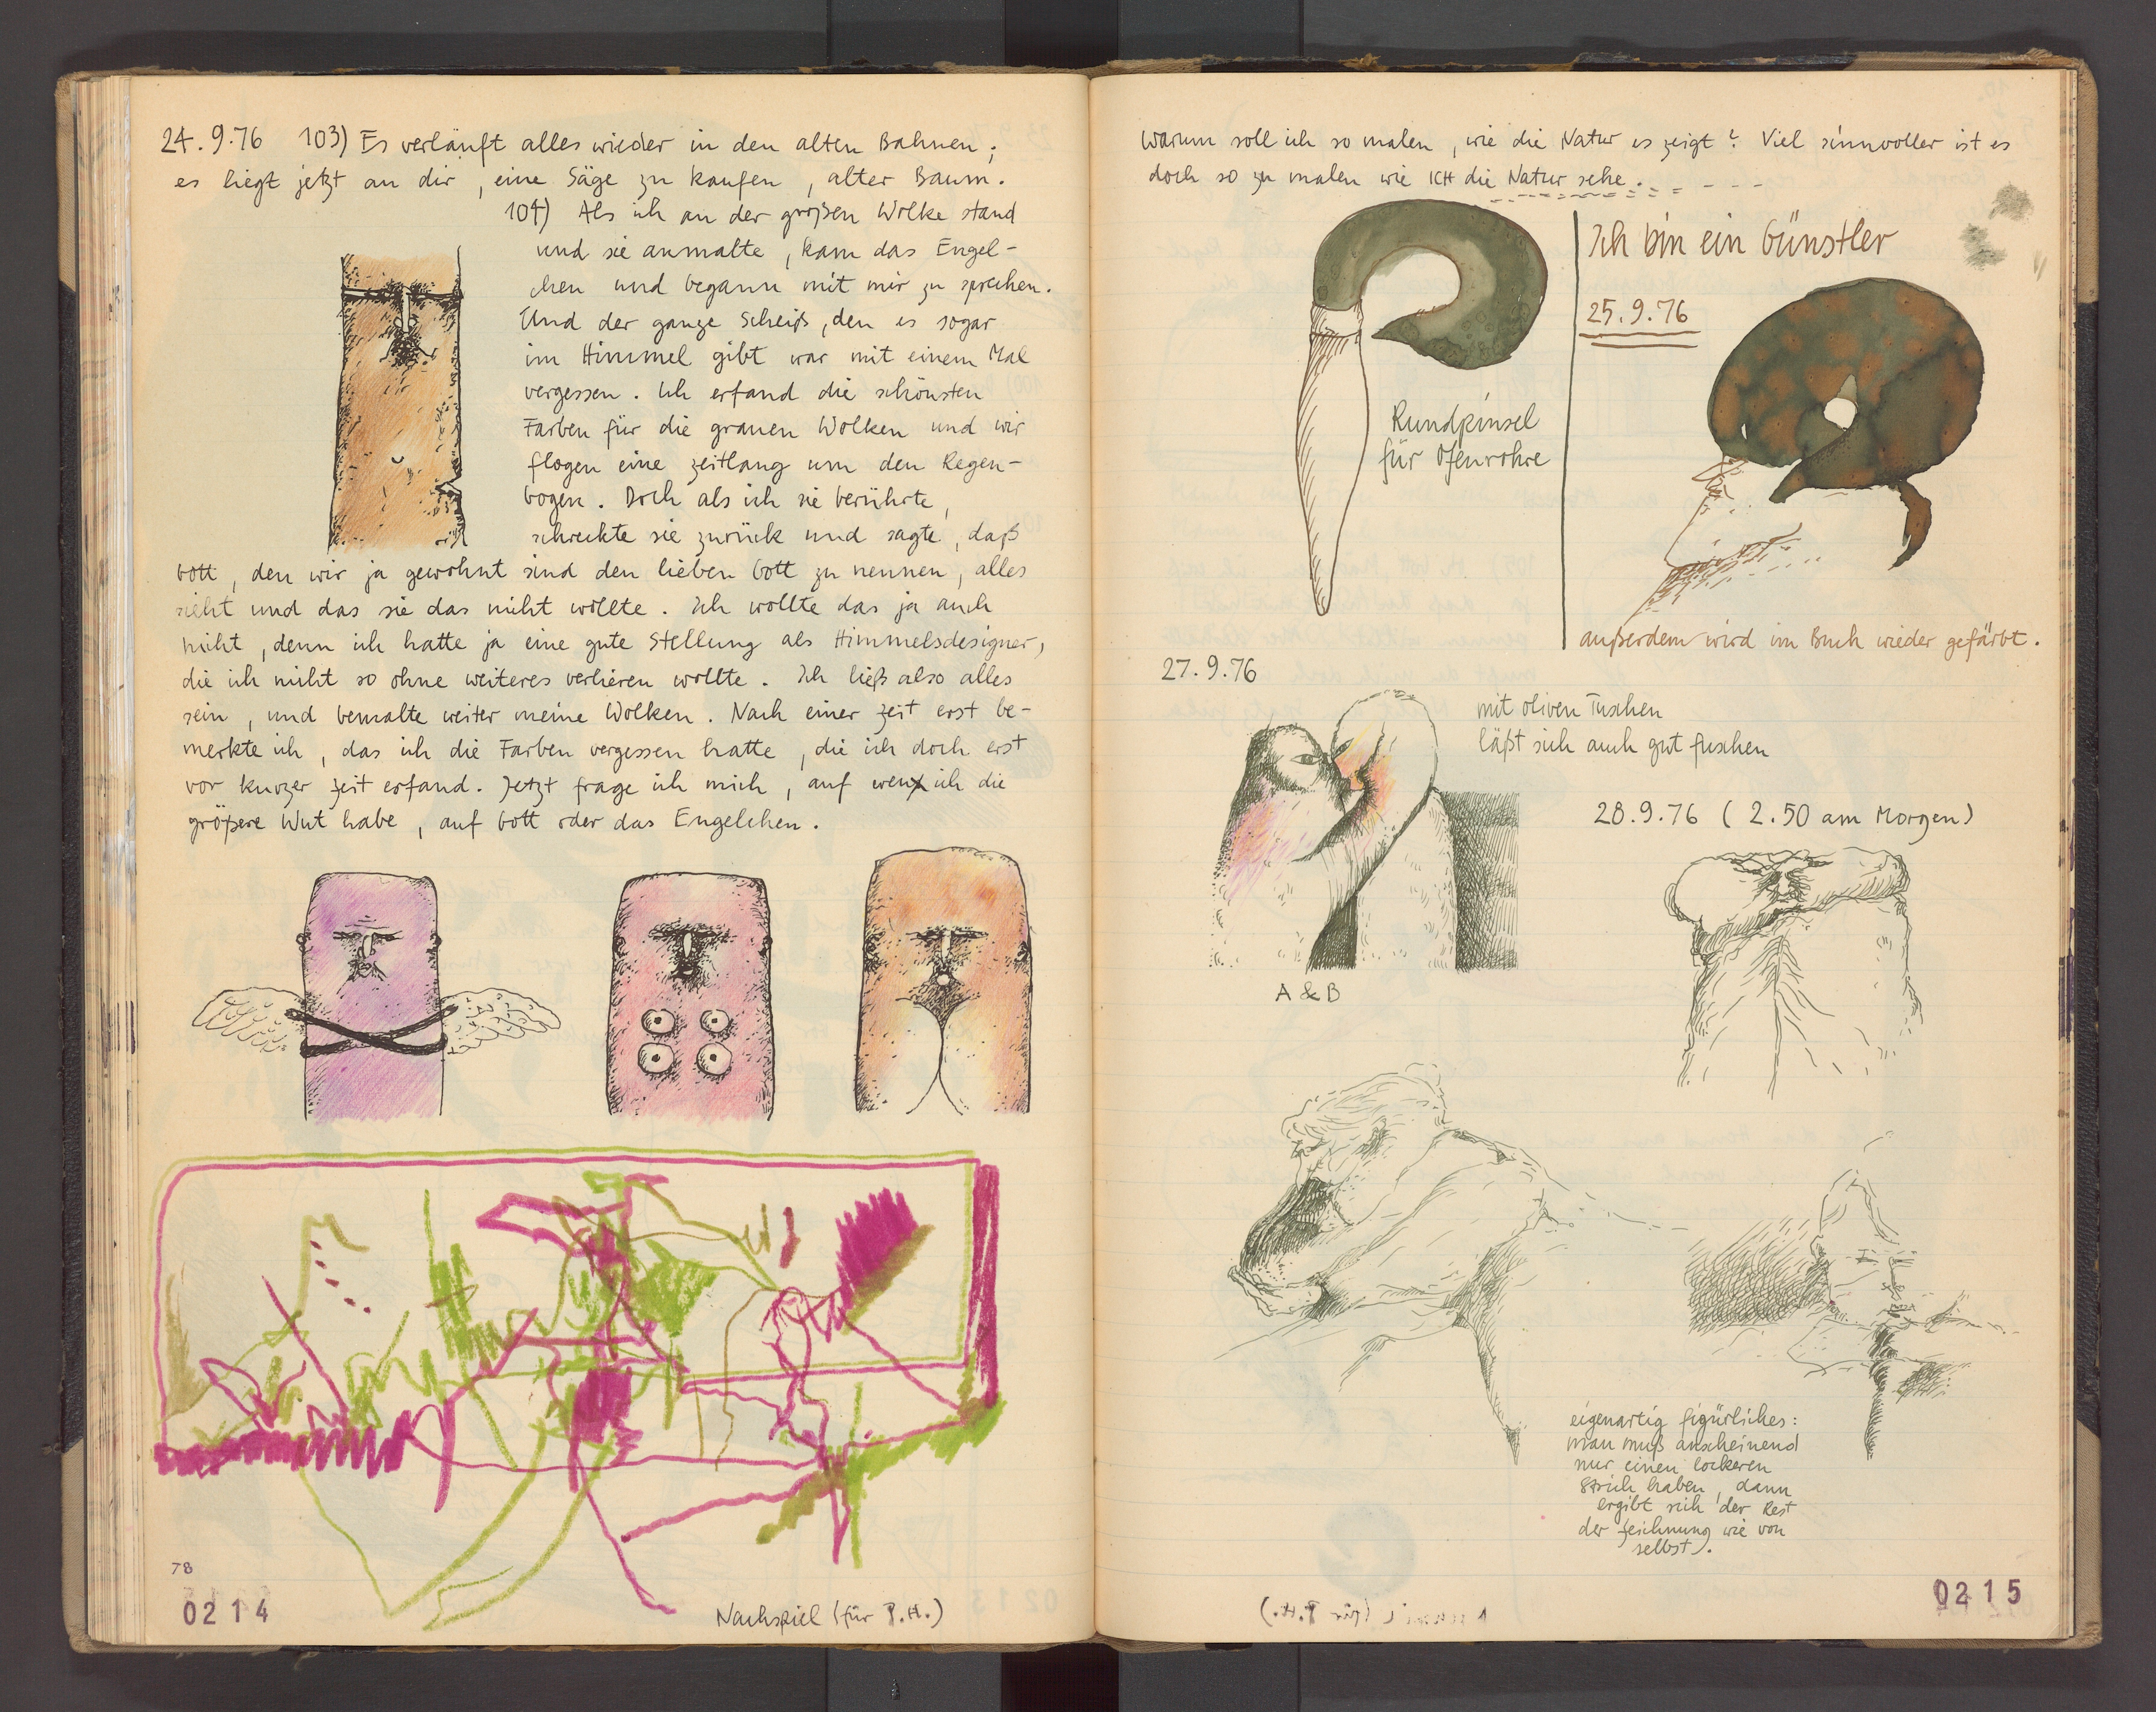 24.9.76 103) Es verläuft alles wieder in den alten Bahnen;
es liegt jetzt an dir, eine Säge zu kaufen, alter Baum.
104) Als ich an der großen Wolke stand
und sie anmalte, kam das Engel-
chen und begann mit mir zu sprechen.
Und der ganze Scheiß, den es sogar
im Himmel gibt war mit einem Mal
vergessen. Ich erfand die schönsten
Farben für die grauen Wolken und wir
flogen eine zeitlang um den Regen-
bogen. Doch als ich sie berührte,
schreckte sie zurück und sagte, daß
Gott, den wir ja gewohnt sind den lieben Gott zu nennen, alles
sieht und das sie das nicht wollte. Ich wollte das ja auch
nicht, denn ich hatte ja eine gute Stellung als Himmelsdesigner,
die ich nicht so ohne weiteres verlieren wollte. Ich ließ also alles
sein, und bemalte weiter meine Wolken. Nach einer Zeit erst be-
merkte ich, das ich die Farben vergessen hatte, die ich doch erst
vor kurzer Zeit erfand. Jetzt frage ich mich, auf wen ich die
größere Wut habe, auf Gott oder das Engelchen.
78
0214
Nachspiel (für P.H.)
Warum soll ich so malen, wie die Natur es zeigt? Viel sinnvoller ist es
doch so zu malen wie ICH die Natur sehe.
Ich bin ein Günstler
25.9.76
Rundpinsel
für Ofenrohre
außerdem wird im Buch wieder gefärbt.
27.9.76
mit oliven Tuschen
läßt sich auch gut fuschen
28.9.76 (2.50 am Morgen)
A & B
eigenartig figürliches:
man muß anscheinend
nur einen lockeren
Strich haben, dann
ergibt sich der Rest
der Zeichnung wie von
selbst).
0215